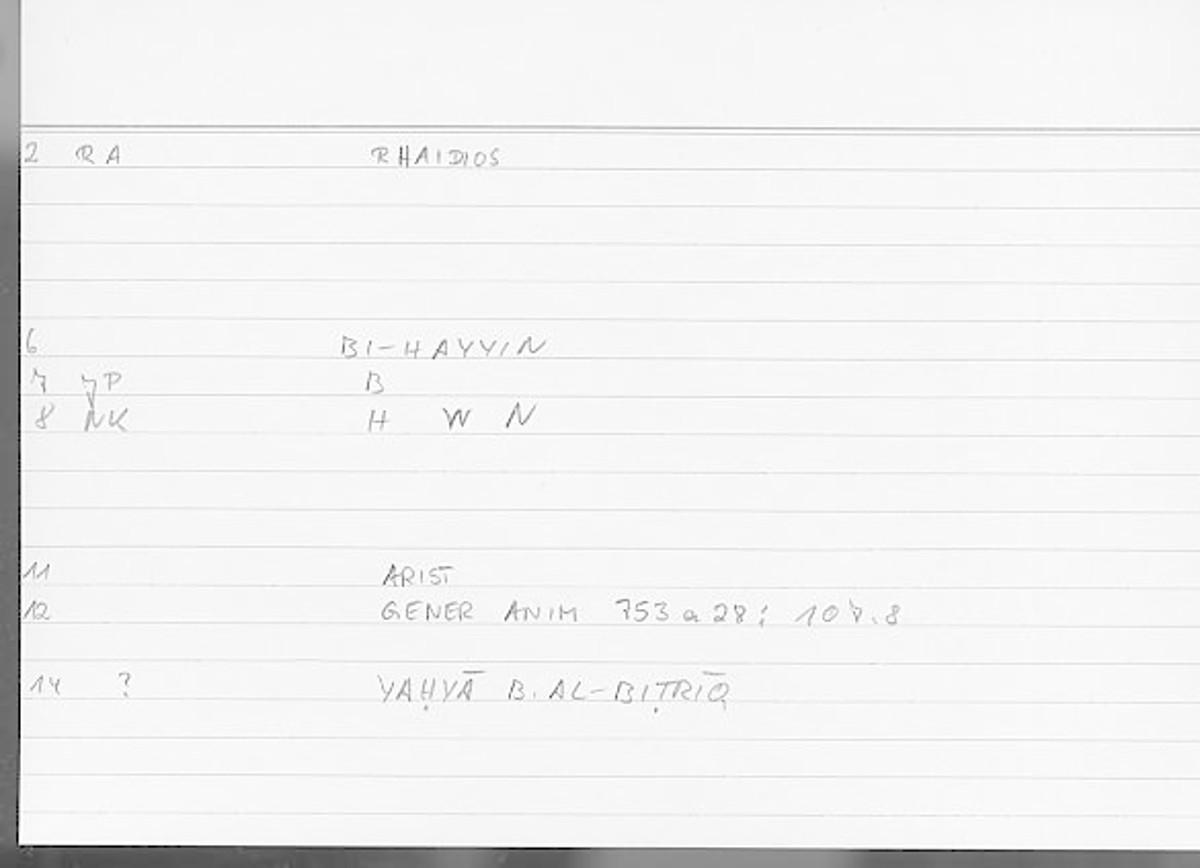 2 RA RHAIDIOS
6 BI-HAYYIN
7 γP B
8 NK H W N
11 ARIST
12 GENER ANIM 753 a 28; 107.8
14 ? YAḤYĀ B. AL-BIṬRĪQ